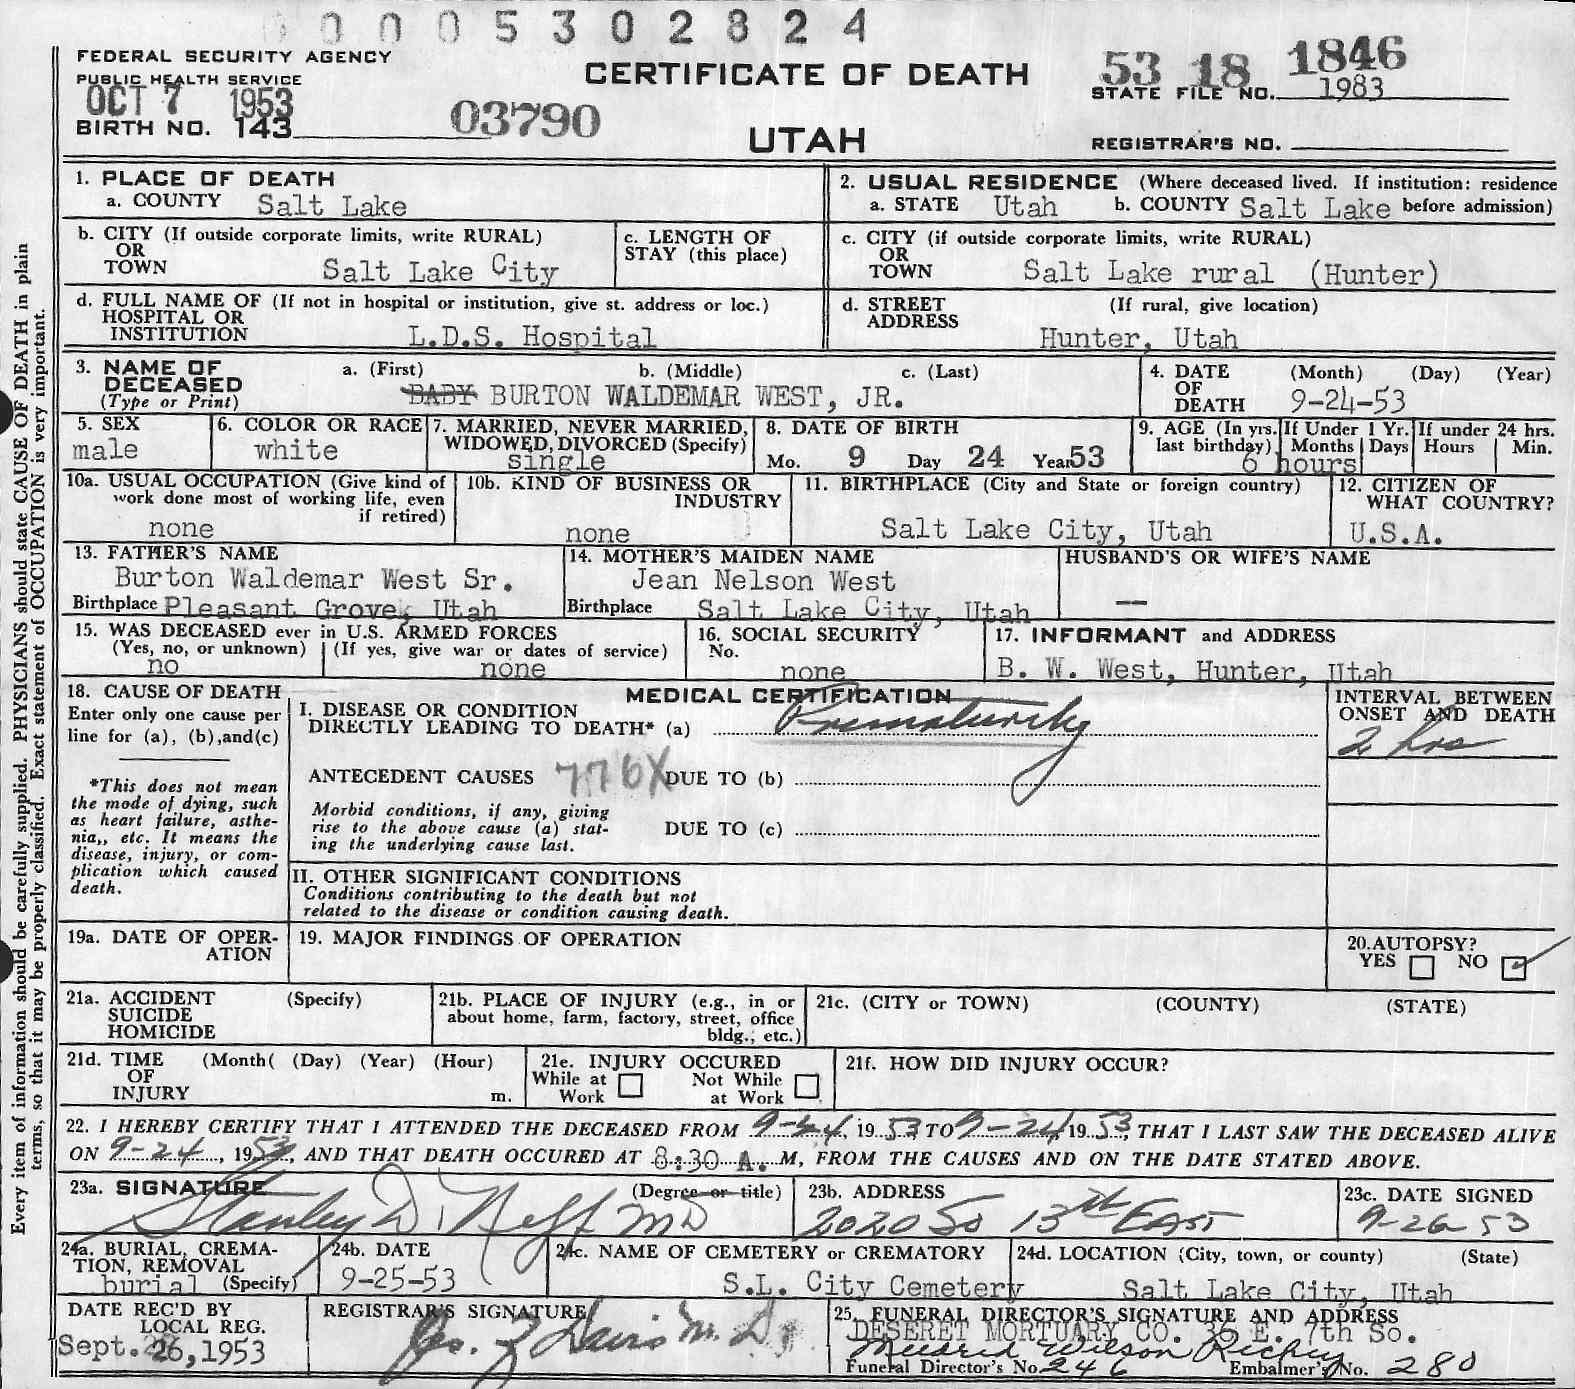 0005302824
FEDERAL SECURITY AGENCY
PUBLIC HEALTH SERVICE
OCT 7 1953
BIRTH NO. 143
03790
CERTIFICATE OF DEATH
UTAH
53 18 1846
STATE FILE NO. 1983
REGISTRAR'S NO.
Every item of information should be carefully supplied. PHYSICIANS should state CAUSE OF DEATH in plain
terms, so that it may be properly classified. Exact statement of OCCUPATION is very important.
1. PLACE OF DEATH
a. COUNTY Salt Lake
2. USUAL RESIDENCE (Where deceased lived. If institution: residence
a. STATE Utah b. COUNTY Salt Lake before admission)
b. CITY (If outside corporate limits, write RURAL)
OR
TOWN Salt Lake City
c. LENGTH OF
STAY (this place)
c. CITY (if outside corporate limits, write RURAL)
OR
TOWN Salt Lake rural (Hunter)
d. FULL NAME OF (If not in hospital or institution, give st. address or loc.)
HOSPITAL OR
INSTITUTION L.D.S. Hospital
d. STREET (If rural, give location)
ADDRESS
Hunter, Utah
3. NAME OF a. (First) b. (Middle) c. (Last)
DECEASED
(Type or Print) BABY BURTON WALDEMAR WEST, JR.
4. DATE (Month) (Day) (Year)
OF
DEATH 9-24-53
5. SEX
male
6. COLOR OR RACE
white
7. MARRIED, NEVER MARRIED,
WIDOWED, DIVORCED (Specify)
single
8. DATE OF BIRTH
Mo. 9 Day 24 Year 53
9. AGE (In yrs. last birthday)
If Under 1 Yr. Months Days
If under 24 hrs. Hours Min.
6 hours
10a. USUAL OCCUPATION (Give kind of
work done most of working life, even
if retired)
none
10b. KIND OF BUSINESS OR
INDUSTRY
none
11. BIRTHPLACE (City and State or foreign country)
Salt Lake City, Utah
12. CITIZEN OF
WHAT COUNTRY?
U.S.A.
13. FATHER'S NAME
Burton Waldemar West Sr.
Birthplace Pleasant Grove, Utah
14. MOTHER'S MAIDEN NAME
Jean Nelson West
Birthplace Salt Lake City, Utah
HUSBAND'S OR WIFE'S NAME
—
15. WAS DECEASED ever in U.S. ARMED FORCES
(Yes, no, or unknown) (If yes, give war or dates of service)
no none
16. SOCIAL SECURITY
No.
none
17. INFORMANT and ADDRESS
B. W. West, Hunter, Utah
18. CAUSE OF DEATH
Enter only one cause per
line for (a), (b),and(c)
*This does not mean
the mode of dying, such
as heart failure, asthe-
nia,, etc. It means the
disease, injury, or com-
plication which caused
death.
MEDICAL CERTIFICATION
I. DISEASE OR CONDITION
DIRECTLY LEADING TO DEATH* (a) Prematurity
INTERVAL BETWEEN
ONSET AND DEATH
2 hrs
ANTECEDENT CAUSES 776X DUE TO (b)
Morbid conditions, if any, giving
rise to the above cause (a) stat-
ing the underlying cause last.
DUE TO (c)
II. OTHER SIGNIFICANT CONDITIONS
Conditions contributing to the death but not
related to the disease or condition causing death.
19a. DATE OF OPER-
ATION
19. MAJOR FINDINGS OF OPERATION
20. AUTOPSY?
YES NO
21a. ACCIDENT (Specify)
SUICIDE
HOMICIDE
21b. PLACE OF INJURY (e.g., in or
about home, farm, factory, street, office
bldg., etc.)
21c. (CITY or TOWN) (COUNTY) (STATE)
21d. TIME (Month( (Day) (Year) (Hour)
OF
INJURY m.
21e. INJURY OCCURED
While at Work Not While at Work
21f. HOW DID INJURY OCCUR?
22. I HEREBY CERTIFY THAT I ATTENDED THE DECEASED FROM 9-24, 1953, TO 9-24, 1953, THAT I LAST SAW THE DECEASED ALIVE
ON 9-24, 1953, AND THAT DEATH OCCURED AT 8:30 A. M, FROM THE CAUSES AND ON THE DATE STATED ABOVE.
23a. SIGNATURE (Degree or title)
Stanley D. Neff MD
23b. ADDRESS
2020 So 13th East
23c. DATE SIGNED
9-26-53
24a. BURIAL, CREMA-
TION, REMOVAL
burial (Specify)
24b. DATE
9-25-53
24c. NAME OF CEMETERY or CREMATORY
S.L. City Cemetery
24d. LOCATION (City, town, or county) (State)
Salt Lake City, Utah
DATE REC'D BY
LOCAL REG.
Sept. 26, 1953
REGISTRAR'S SIGNATURE
Geo. Z Davis M.D.
25. FUNERAL DIRECTOR'S SIGNATURE AND ADDRESS
DESERET MORTUARY CO. 36 E. 7th So.
Mildred Wilson Richey
Funeral Director's No. 246 Embalmer's No. 280